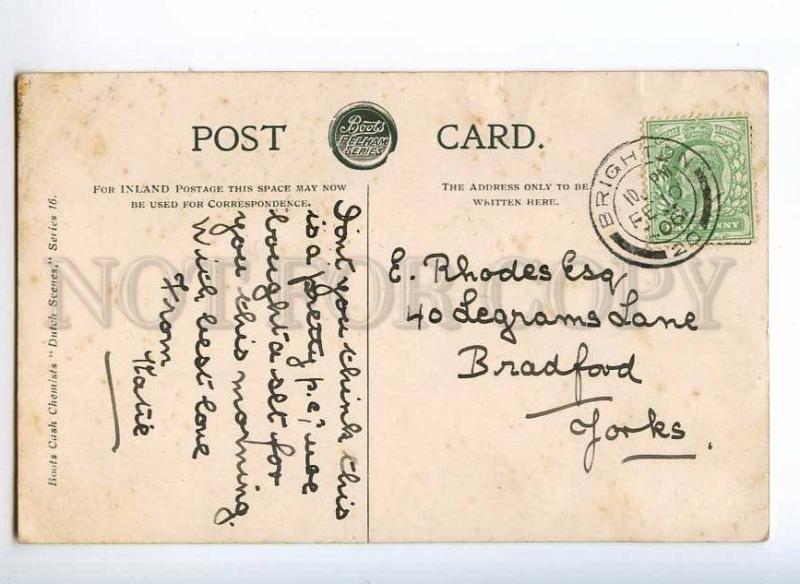 POST CARD.
Boots
PELHAM
SERIES
FOR INLAND POSTAGE THIS SPACE MAY NOW
BE USED FOR CORRESPONDENCE.
THE ADDRESS ONLY TO BE
WRITTEN HERE.
BRIGHTON
06
Boots Cash Chemists "Dutch Scenes," Series 16.
Dont you think this
is a pretty p.c; we
bought a set for
you this morning.
With best love
From
Katie
E. Rhodes Esq
40 Legrams Lane
Bradford
Yorks.
NOT FOR COPY